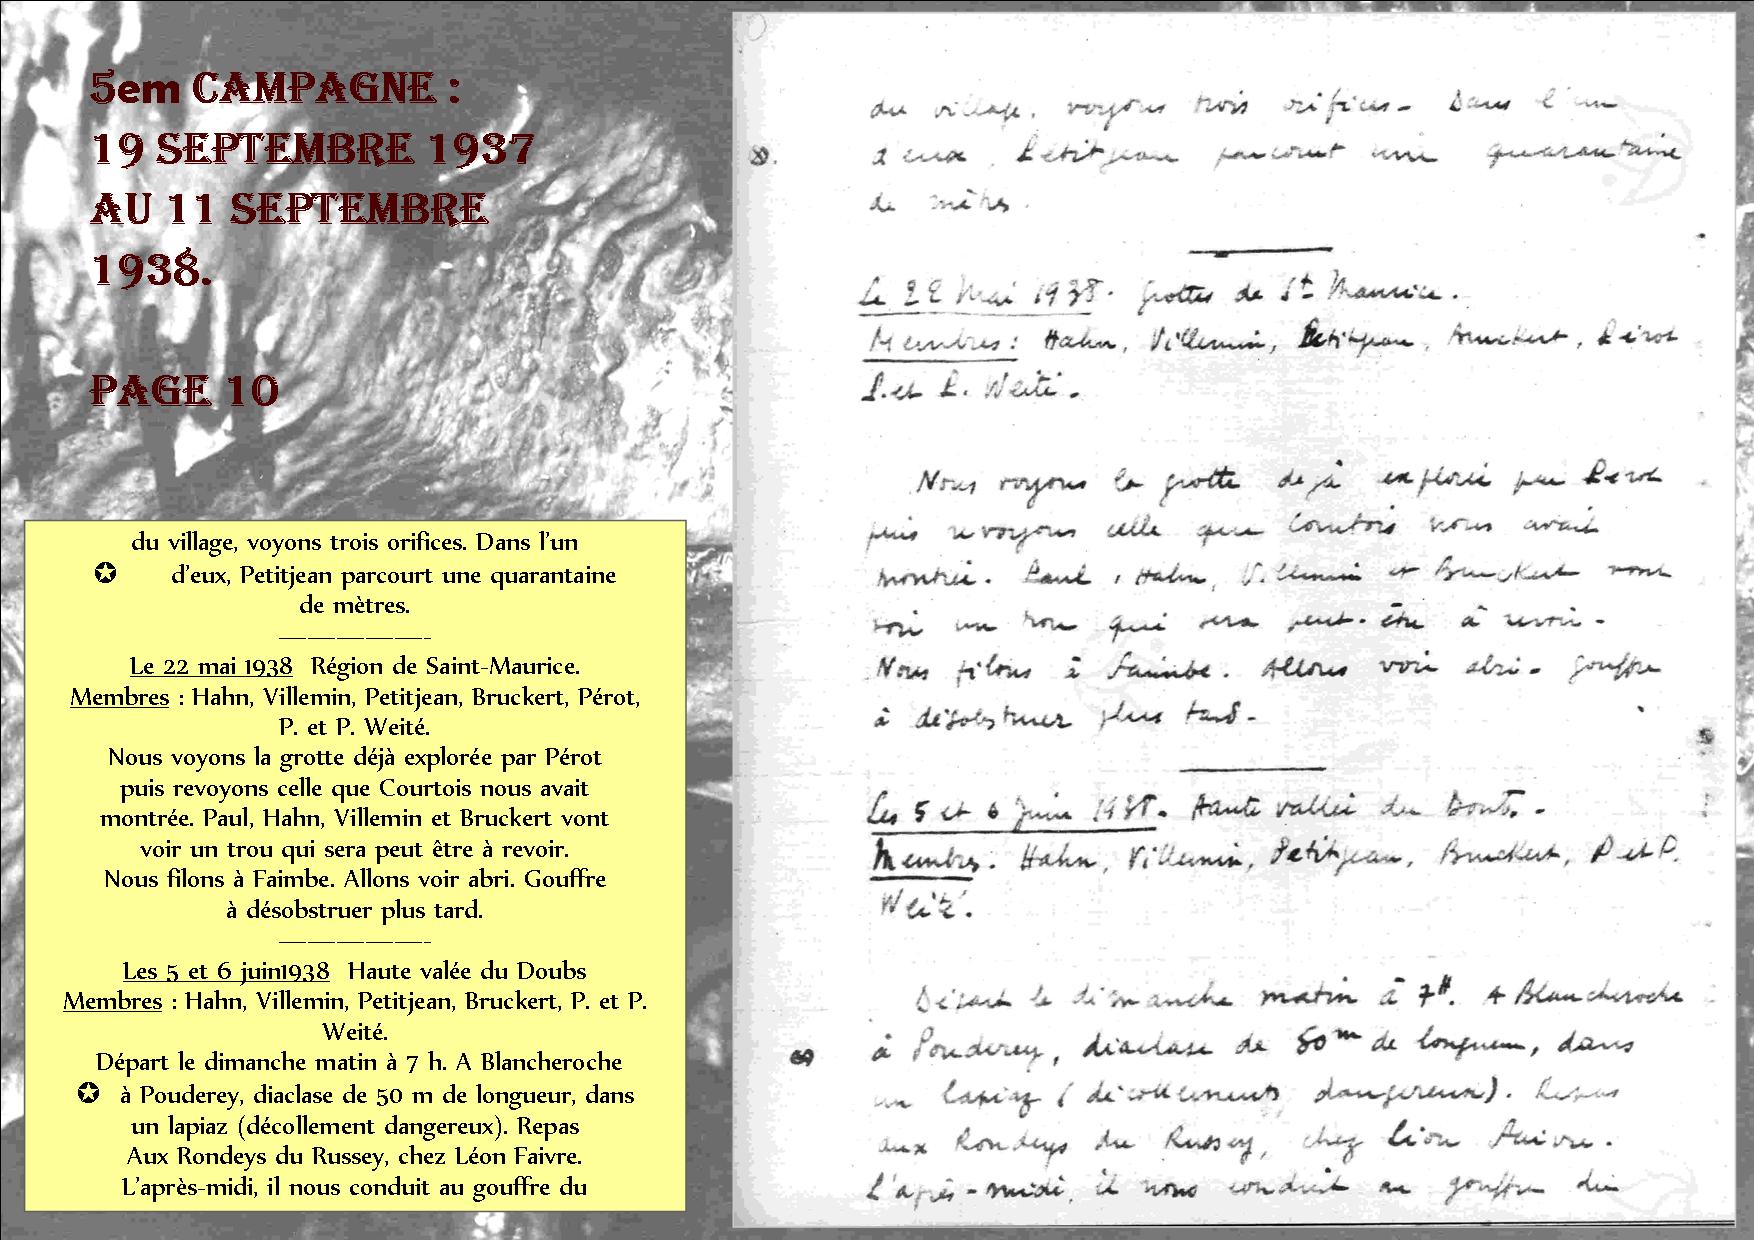 5em CAMPAGNE :
19 SEPTEMBRE 1937
AU 11 SEPTEMBRE
1938.
PAGE 10
du village, voyons trois orifices. Dans l'un
✪ d'eux, Petitjean parcourt une quarantaine
de mètres.
Le 22 mai 1938 Région de Saint-Maurice.
Membres : Hahn, Villemin, Petitjean, Bruckert, Pérot,
P. et P. Weité.
Nous voyons la grotte déjà explorée par Pérot
puis revoyons celle que Courtois nous avait
montrée. Paul, Hahn, Villemin et Bruckert vont
voir un trou qui sera peut être à revoir.
Nous filons à Faimbe. Allons voir abri. Gouffre
à désobstruer plus tard.
Les 5 et 6 juin1938 Haute valée du Doubs
Membres : Hahn, Villemin, Petitjean, Bruckert, P. et P.
Weité.
Départ le dimanche matin à 7 h. A Blancheroche
✪ à Pouderey, diaclase de 50 m de longueur, dans
un lapiaz (décollement dangereux). Repas
Aux Rondeys du Russey, chez Léon Faivre.
L'après-midi, il nous conduit au gouffre du
du village, voyons trois orifices - Dans l'un
d'eux, Petitjean parcourt une quarantaine
de mètres.
Le 22 Mai 1938. Grottes de St Maurice.
Membres : Hahn, Villemin, Petitjean, Bruckert, Pérot
P. et P. Weité.
Nous voyons la grotte déjà explorée par Pérot
puis revoyons celle que Courtois nous avait
montrée. Paul, Hahn, Villemin et Bruckert vont
voir un trou qui sera peut-être à revoir -
Nous filons à Faimbe. Allons voir abri - gouffre
à désobstruer plus tard -
Les 5 et 6 Juin 1938. Haute vallée du Doubs -
Membres. Hahn, Villemin, Petitjean, Bruckert, P et P.
Weité.
Départ le dimanche matin à 7H. A Blancheroche
à Pouderey, diaclase de 50m de longueur, dans
un lapiaz (décollements dangereux). Repas
aux Rondeys du Russey, chez Léon Faivre.
L'après-midi, il nous conduit au gouffre du